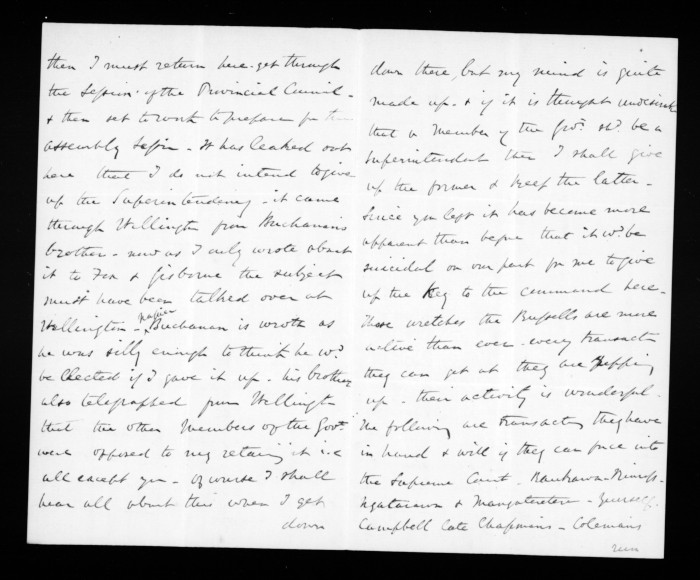 then I must return here - get through
the Session of the Provincial Council -
& then set to work to prepare for the
assembly Session - It has leaked out
here that I do not intend to give
up the Superintendency - it came
through Wellington from Buchanan's
brother - now as I only wrote about
it to Fox & Gisborne the subject
must have been talked over at
Wellington - Buchanan is wroth as
he was silly enough to think he wd.
be Elected if I gave it up - his brother
also telegraphed from Wellington
that the other Members of the Govt.
were opposed to my retaining it i.e
all except you - of course I shall
hear all about this when I get
down
down there, but my mind is quite
made up - & if it is thought undesirable
that a Member of the Govt. shd. be a
Superintendent then I shall give
up the former & keep the latter -
Since you left it has become more
apparent than before that it wd. be
suicidal on our part for me to give
up the Key to the command here -
These wretches the Russells are more
active than ever - every transactn
they can get at they are ripping
up - their activity is wonderful -
The following are transactns they have
in hand & will if they can force into
the Supreme Court -
Ngatarawa & Mangateretere -
Campbell late Chapmans - Colemans
run